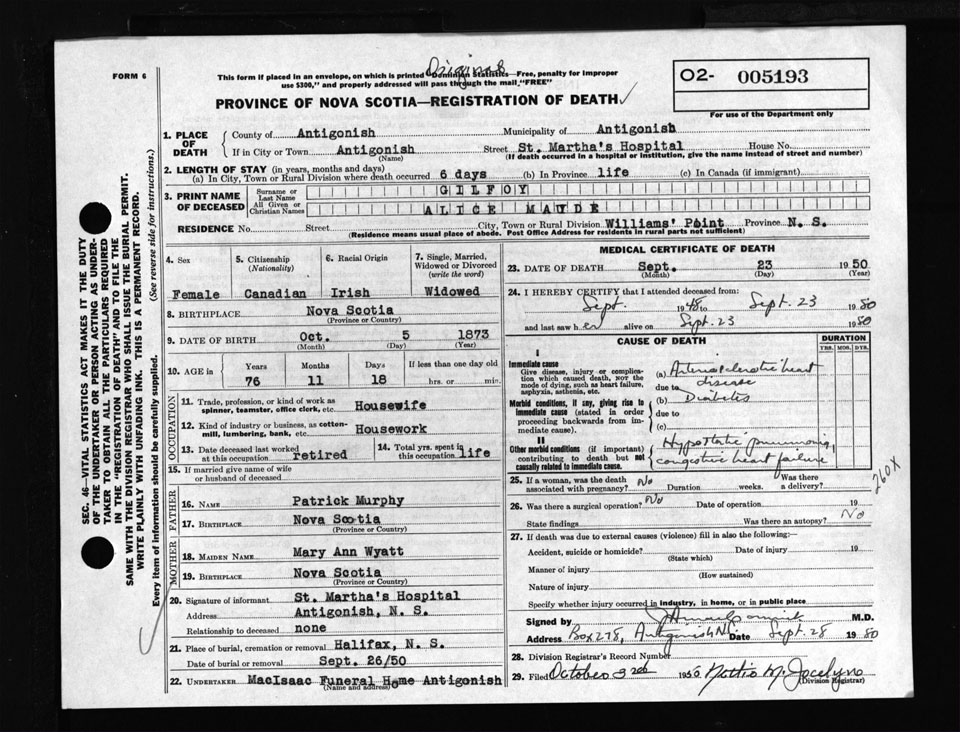 Original
FORM 6
This form if placed in an envelope, on which is printed "Dominion Statistics—Free, penalty for improper
use $300," and properly addressed will pass through the mail "FREE"
O2- 005193
For use of the Department only
PROVINCE OF NOVA SCOTIA—REGISTRATION OF DEATH
SEC. 46—VITAL STATISTICS ACT MAKES IT THE DUTY
OF THE UNDERTAKER OR PERSON ACTING AS UNDER-
TAKER TO OBTAIN ALL THE PARTICULARS REQUIRED
IN THE "REGISTRATION OF DEATH" AND TO FILE THE
SAME WITH THE DIVISION REGISTRAR WHO SHALL ISSUE THE BURIAL PERMIT.
WRITE PLAINLY WITH UNFADING INK. THIS IS A PERMANENT RECORD.
Every item of information should be carefully supplied. (See reverse side for instructions.)
1. PLACE OF DEATH
County of Antigonish Municipality of Antigonish
If in City or Town Antigonish Street St. Martha's Hospital House No.
(Name) (If death occurred in a hospital or institution, give the name instead of street and number)
2. LENGTH OF STAY (in years, months and days)
(a) In City, Town or Rural Division where death occurred 6 days (b) In Province life (c) In Canada (if immigrant)
3. PRINT NAME OF DECEASED
Surname or Last Name GILFOY
All Given or Christian Names ALICE MAUDE
RESIDENCE No. Street City, Town or Rural Division Williams' Point Province N. S.
(Residence means usual place of abode. Post Office Address for residents in rural parts not sufficient)
4. Sex 5. Citizenship (Nationality) 6. Racial Origin 7. Single, Married, Widowed or Divorced (write the word)
Female Canadian Irish Widowed
8. BIRTHPLACE Nova Scotia
(Province or Country)
9. DATE OF BIRTH Oct. 5 1873
(Month) (Day) (Year)
10. AGE in Years Months Days If less than one day old
76 11 18 hrs. or min.
OCCUPATION
11. Trade, profession, or kind of work as spinner, teamster, office clerk, etc. Housewife
12. Kind of industry or business, as cotton-mill, lumbering, bank, etc Housework
13. Date deceased last worked at this occupation retired 14. Total yrs. spent in this occupation life
15. If married give name of wife or husband of deceased
FATHER
16. NAME Patrick Murphy
17. BIRTHPLACE Nova Scotia
(Province or Country)
MOTHER
18. MAIDEN NAME Mary Ann Wyatt
19. BIRTHPLACE Nova Scotia
(Province or Country)
20. Signature of informant St. Martha's Hospital
Address Antigonish, N. S.
Relationship to deceased none
21. Place of burial, cremation or removal Halifax, N. S.
Date of burial or removal Sept. 26/50
22. UNDERTAKER MacIsaac Funeral Home Antigonish
(Name and address)
MEDICAL CERTIFICATE OF DEATH
23. DATE OF DEATH Sept. 23 1950
(Month) (Day) (Year)
24. I HEREBY CERTIFY that I attended deceased from:
Sept. 1948 to Sept. 23 1950
and last saw her alive on Sept. 23 1950
CAUSE OF DEATH DURATION
YRS. MOS. DYS.
I
Immediate cause
Give disease, injury or complication which caused death, NOT the mode of dying, such as heart failure, asphyxia, asthenia, etc.
(a) Arteriosclerotic heart disease
due to
Morbid conditions, if any, giving rise to immediate cause (stated in order proceeding backwards from immediate cause).
(b) Diabetes
due to
(c)
II
Other morbid conditions (if important) contributing to death but not causally related to immediate cause.
Hypostatic pneumonia,
congestive heart failure
260X
25. If a woman, was the death associated with pregnancy? No Duration weeks. Was there a delivery?
26. Was there a surgical operation? No Date of operation 19
State findings Was there an autopsy? No
27. If death was due to external causes (violence) fill in also the following:—
Accident, suicide or homicide? Date of injury 19
(State which)
Manner of injury
(How sustained)
Nature of injury
Specify whether injury occurred in industry, in home, or in public place
Signed by M.D.
Address Box 278, Antigonish N.S. Date Sept. 28 1950
28. Division Registrar's Record Number
29. Filed October 3rd 1950 M. Jocelyn
(Division Registrar)